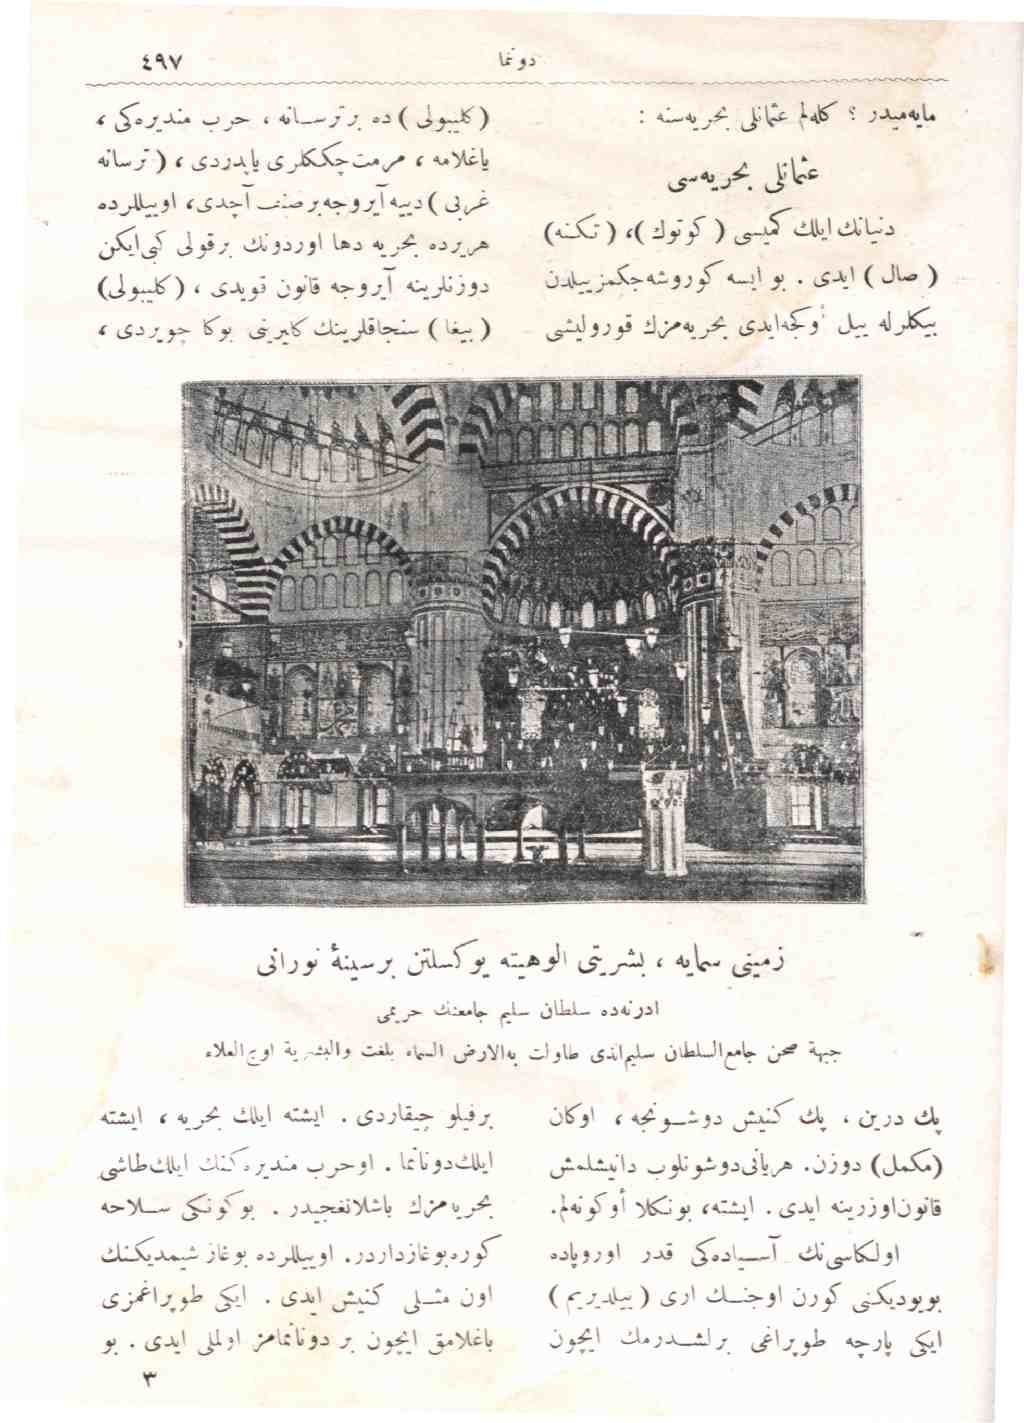 دونما
٤٩٧
مایه‌میدر ؟ كله‌لم عثمانلی بحریه‌سنه :
عثمانلی بحریه‌سی
دنیانك ایلك كمیسی ( كوتوك )، ( تكنه )
( صال ) ایدی . بو ایسه كوروشه‌جكمز ییلدن
بیكلرله ییل أوكجه‌ایدی بحریه‌مزك قورولیشی
( كلیبولی ) ده بر ترسـانه ، حرب مندیره‌كی ،
یاغلامه ، مرمت چككلری یاپدردی ، ( ترسانه
غربی ) دییه آیروجه‌بر صنف آچدی، اوییللرده
هریرده بحریه دها اوردونك برقولی كبی‌ایكن
دوزنلرینه آیروجه قانون قویدی ، ( كلیبولی)
( بیغا ) سنجاقلرینك كلیرینی بوكا چویردی ،
زمینی سمایه ، بشریتی الوهیته یوكسلتن برسینهٔ نورانی
ادرنه‌ده سلطان سلیم جامعنك حریمی
جبهة صحن جامع السلطان سلیم الذی طاولت به‌الارض السماء بلغت والبشریة اوج العلاء
پك درین ، پك كنیش دوشـونجه ، اوكان
(مكمل) دوزن. هریانی‌دوشونلوب دانیشلمش
قانون‌اوزرینه ایدی . ایشته، بونكلا أوكونه‌لم.
اولكاسی‌نك آسـیاده‌كی قدر اوروپاده
بویودیكنی كورن اوجنـك اری ( ییلدیریم )
ایكی پارچه طوپراغی برلشـدرمك ایچون
برفیلو چیقاردی . ایشته ایلك بحریه ، ایشته
ایلك‌دونانما . اوحرب مندیره‌كنك ایلك‌طاشی
بحریه‌مزك باشلانغجیدر . بوكونكی سـلاحه
كوره‌بوغازداردر. اوییللرده بوغاز شیمدیكنك
اون مثـلی كنیش ایدی . ایكی طوپراغمزی
باغلامق ایچون بر دونانمامز اولملی ایدی . بو
٣